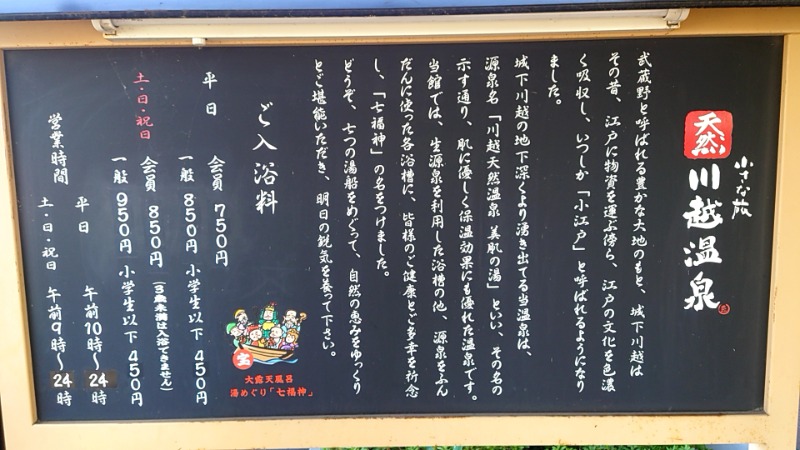 小さな旅
天然
川越温泉
武蔵野と呼ばれる豊かな大地のもと、城下川越は
その昔、江戸に物資を運ぶ傍ら、江戸の文化を色濃
く吸収し、いつしか「小江戸」と呼ばれるようになり
ました。
城下川越の地下深くより湧き出てる当温泉は、
源泉名「川越天然温泉 美肌の湯」といい、その名の
示す通り、肌に優しく保温効果にも優れた温泉です。
当館では、生源泉を利用した浴槽の他、源泉をふん
だんに使った各浴槽に、皆様のご健康とご多幸を祈念
し、「七福神」の名をつけました。
どうぞ、七つの湯船をめぐって、自然の恵みをゆっくり
とご堪能いただき、明日の鋭気を養って下さい。
宝
大露天風呂
湯めぐり「七福神」
ご入浴料
平日 会員 750円
一般 850円 小学生以下 450円
(3歳未満は入浴できません)
土・日・祝日 会員 850円
一般 950円 小学生以下 450円
営業時間 平日 午前10時〜24時
土・日・祝日 午前9時〜24時